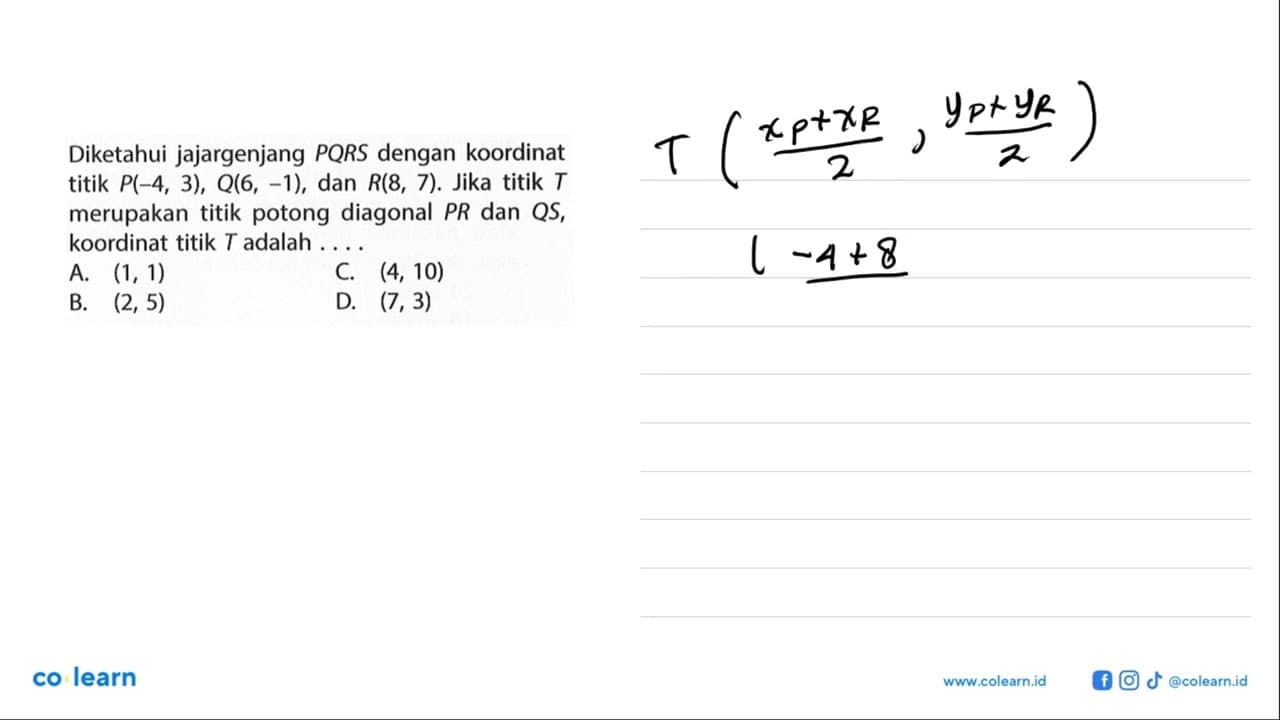 Diketahui jajargenjang PQRS dengan koordinat
titik P(–4, 3), Q(6, –1), dan R(8, 7). Jika titik T
merupakan titik potong diagonal PR dan QS,
koordinat titik T adalah . . . .
A. (1, 1) C. (4, 10)
B. (2, 5) D. (7, 3)
T ( xP+xR / 2 , yP+yR / 2 )
( -4+8
co learn
www.colearn.id @colearn.id